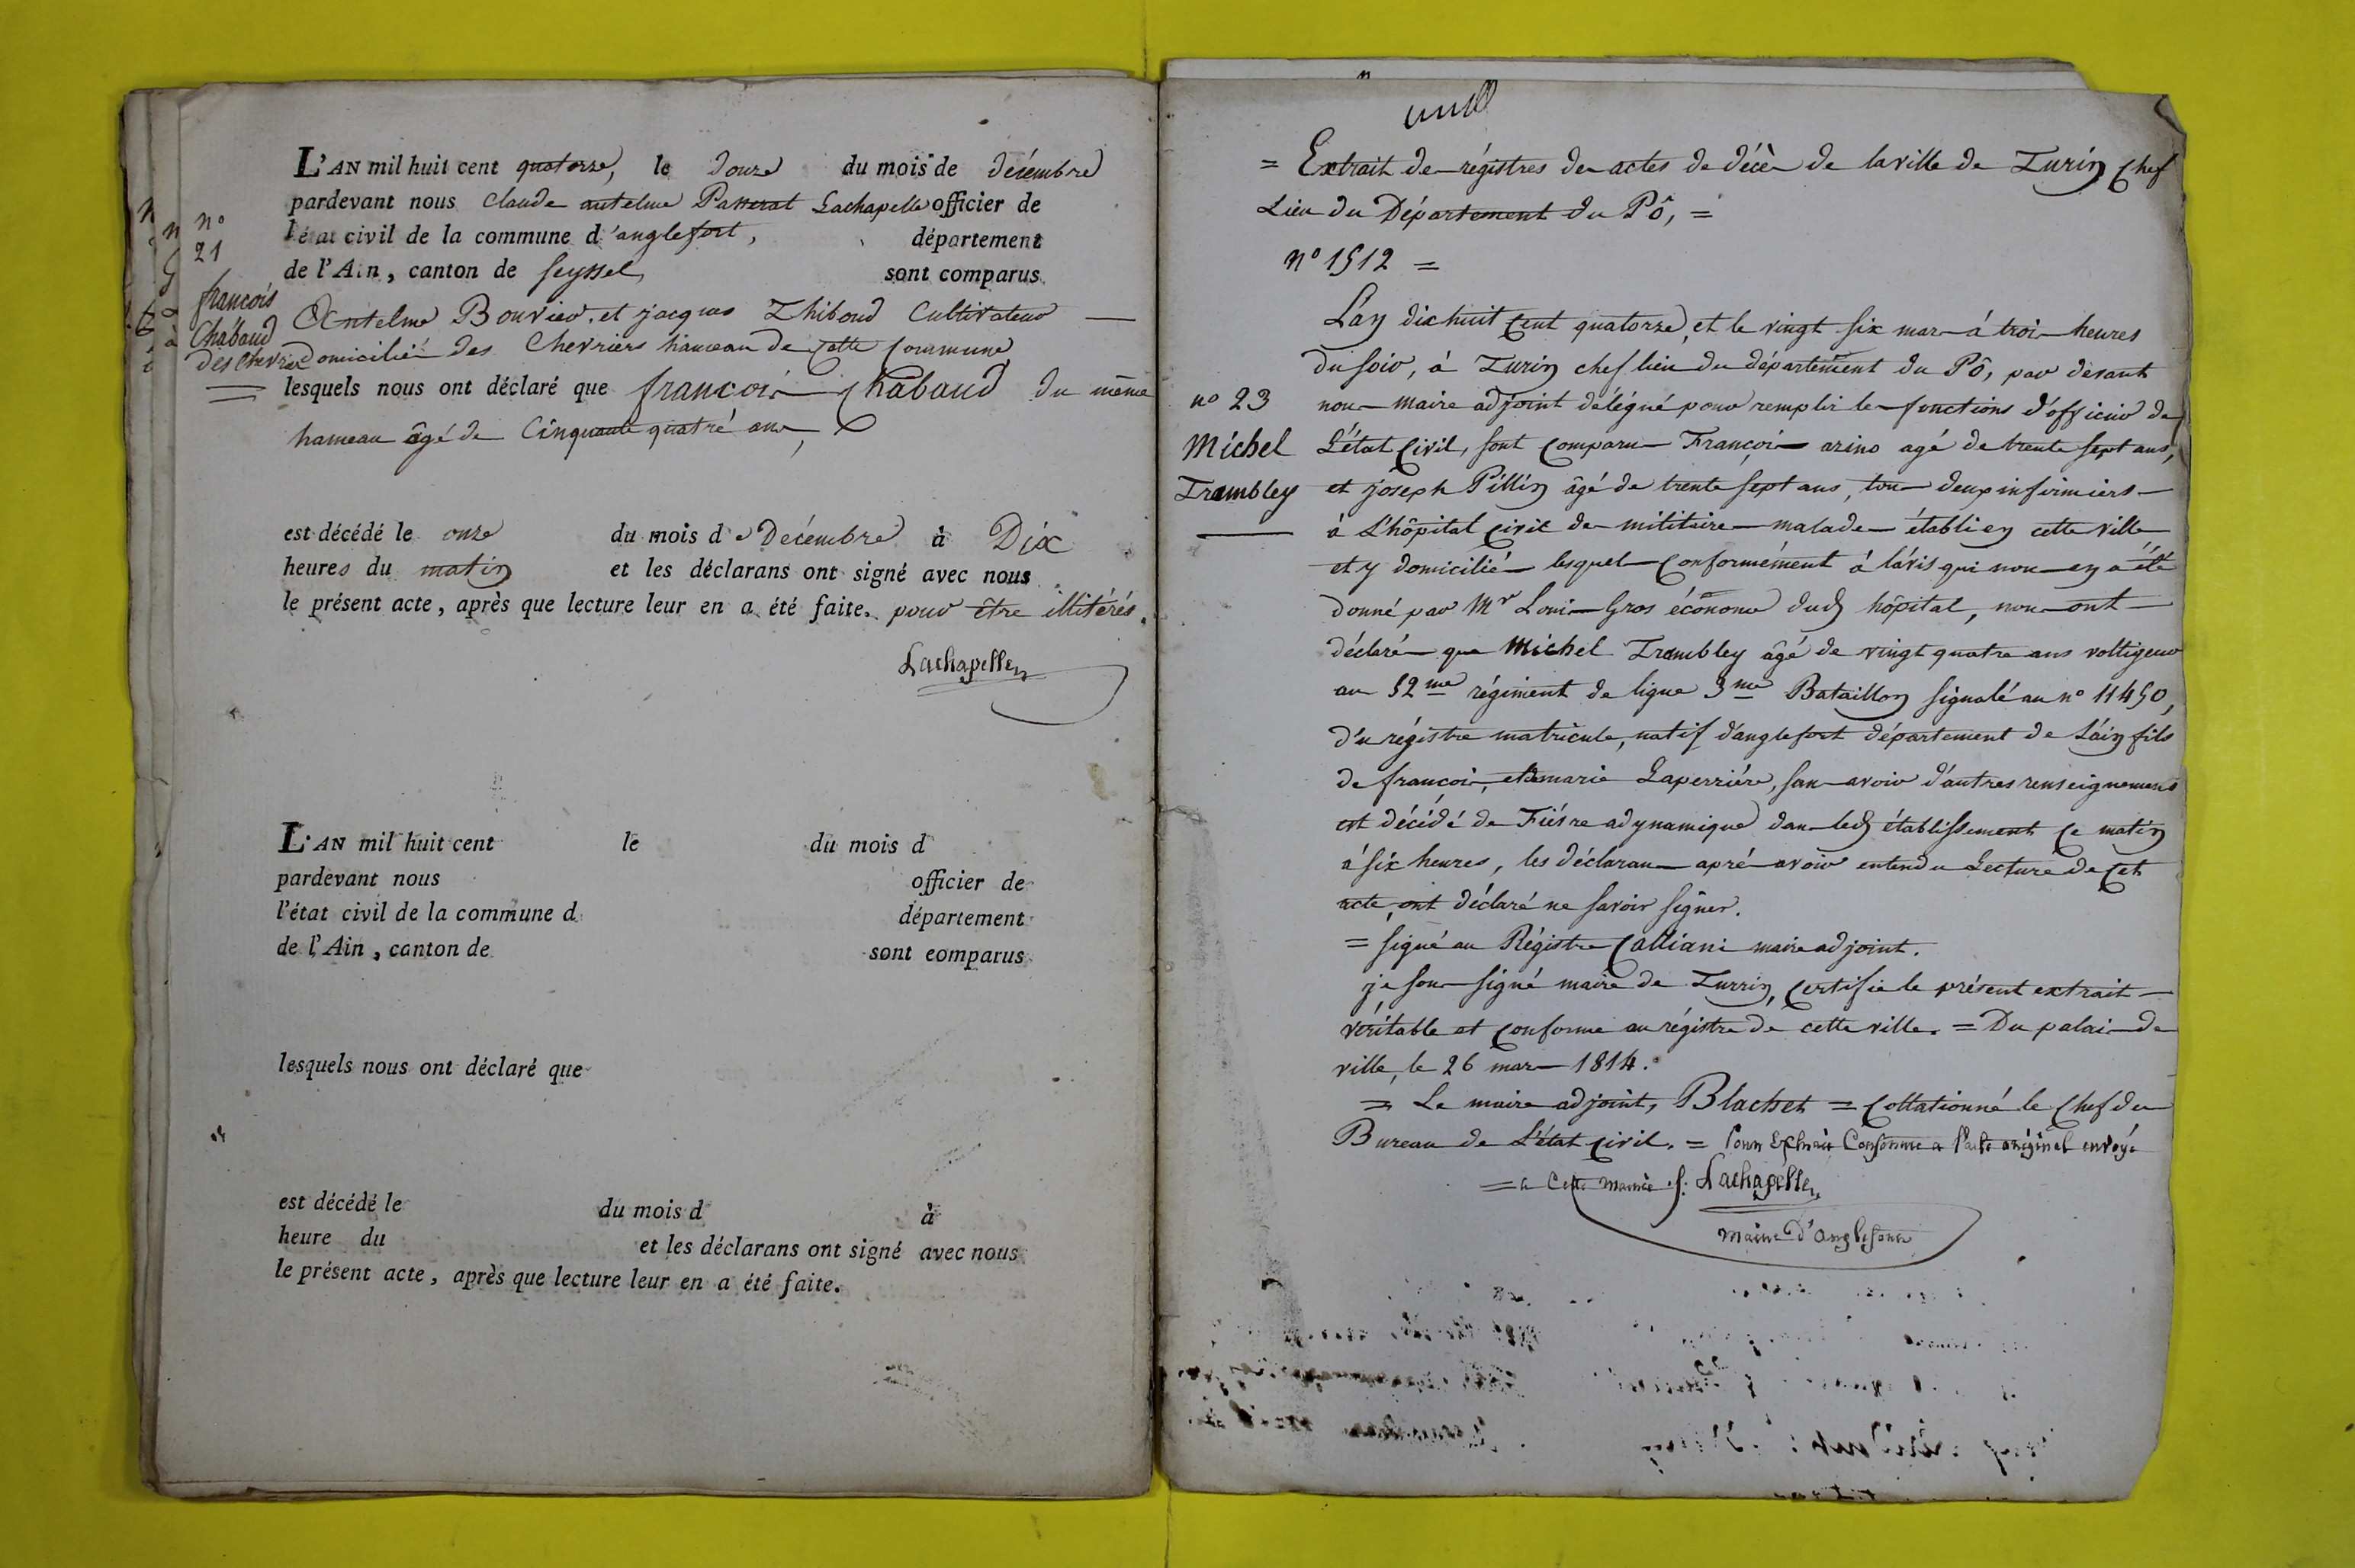 n°
21
françois
Chabaud
des Chevriers
L'AN mil huit cent quatorze, le Douze du mois de décembre
pardevant nous Claude antelme Passerat Lachapelle officier de
l'état civil de la commune d'anglefort, département
de l'Ain, canton de seyssel, sont comparus
Antelme Bouvier, et jacques Thiboud Cultivateur —
domiciliés des Chevriers hameau de cette commune
lesquels nous ont déclaré que françois Chabaud du même
hameau âgé de Cinquante quatré ans,
est décédé le onze du mois de Décembre à Dix
heures du matin et les déclarans ont signé avec nous
le présent acte, après que lecture leur en a été faite. pour être illitérés.
Lachapelle
L'AN mil huit cent le du mois d
pardevant nous officier de
l'état civil de la commune d département
de l'Ain, canton de sont comparus
lesquels nous ont déclaré que
est décédé le du mois d à
heure du et les déclarans ont signé avec nous
le présent acte, après que lecture leur en a été faite.
= Extrait des régistres des actes de décès de la ville de Turin Chef
Lieu du Département du Pô, =
n° 1512 =
n° 23
Michel
Trambley
L'an dix huit Cent quatorze, et le vingt six mars à trois heures
du soir, à Turin chef lieu du département du Pô, par devant
nous maire adjoint délégué pour remplir les fonctions d'officier de
L'état Civil, sont Comparus François azino agé de trente sept ans,
et joseph Pillin âgé de trente sept ans, tous deux infirmiers —
à L'hôpital Civil des militaires malades établi en cette ville
et y domiciliés lesquels Conformément à l'avis qui nous en a été
donné par Mr Louis Gros économe dud hôpital, nous ont —
déclaré que Michel Trambley âgé de vingt quatre ans voltigeur
au 52me régiment de ligne 3me Bataillon signalé au n° 11450,
du régistre matricule, natif d'anglefort département de L'ain fils
de françois, et de marie Laperriére, sans avoir d'autres renseignemens
est décédé de Fiévre adynamique dans led établissement Ce matin
à six heures, les déclarans aprés avoir entendu Lecture de Cet
acte, ont déclaré ne savoir signer.
= signé au Régistre Calliani maire adjoint.
je sous signé maire de Turrin, Certifie le présent extrait —
véritable et Conforme au régistre de cette ville. = Du palais de
ville, le 26 mars 1814.
= Le maire adjoint, Blachet = Collationné le Chef du
Bureau de L'état Civil. = Pour Extrait Conforme a l'acte original envoyé
= a Cette Mairie. Lachapelle
maire d'anglefort